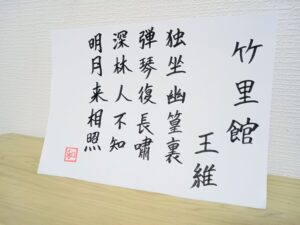 竹里館
王維
独坐幽篁裏
弾琴復長嘯
深林人不知
明月来相照